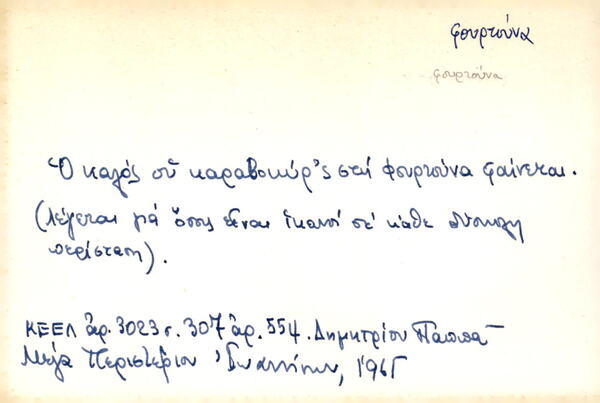 φουρτούνα
φουρτούνα
Ὁ καλός οὑ καραβοκύρ'ς στή φουρτούνα φαίνεται.
(λέγεται γιά ὅσους εἶναι ἱκανοί σέ κάθε δύσκολη
περίσταση).
ΚΕΕΛ ἀρ. 3023 σ. 307 ἀρ. 554. Δημητρίου Παππᾶ
Μεγάλο Περιστέρι Ἰωαννίνων, 196